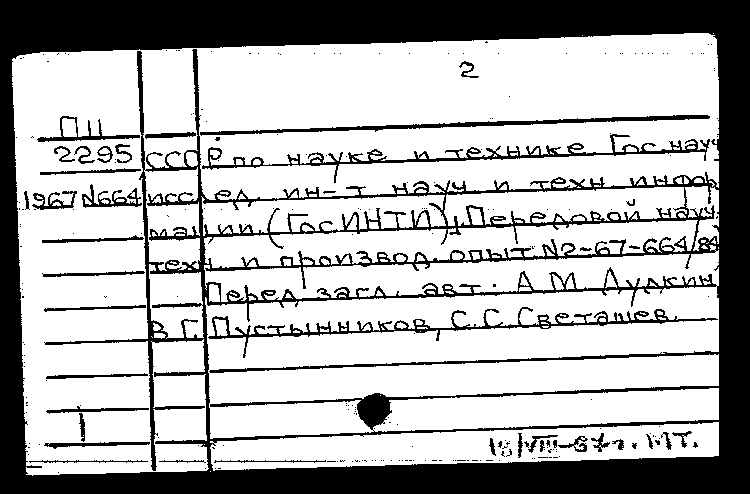 2
П11
2295 СССР по науке и технике Гос. науч
1967 N664 исслед. ин-т науч и техн инфор
мации. (ГосИНТИ), Передовой науч.
техн и производ. опыт. N2-67-664/84
Перед загл. авт. А М Дудкин,
В.Г. Пустынников, С.С. Светашев.
18/VIII-67г. МТ.